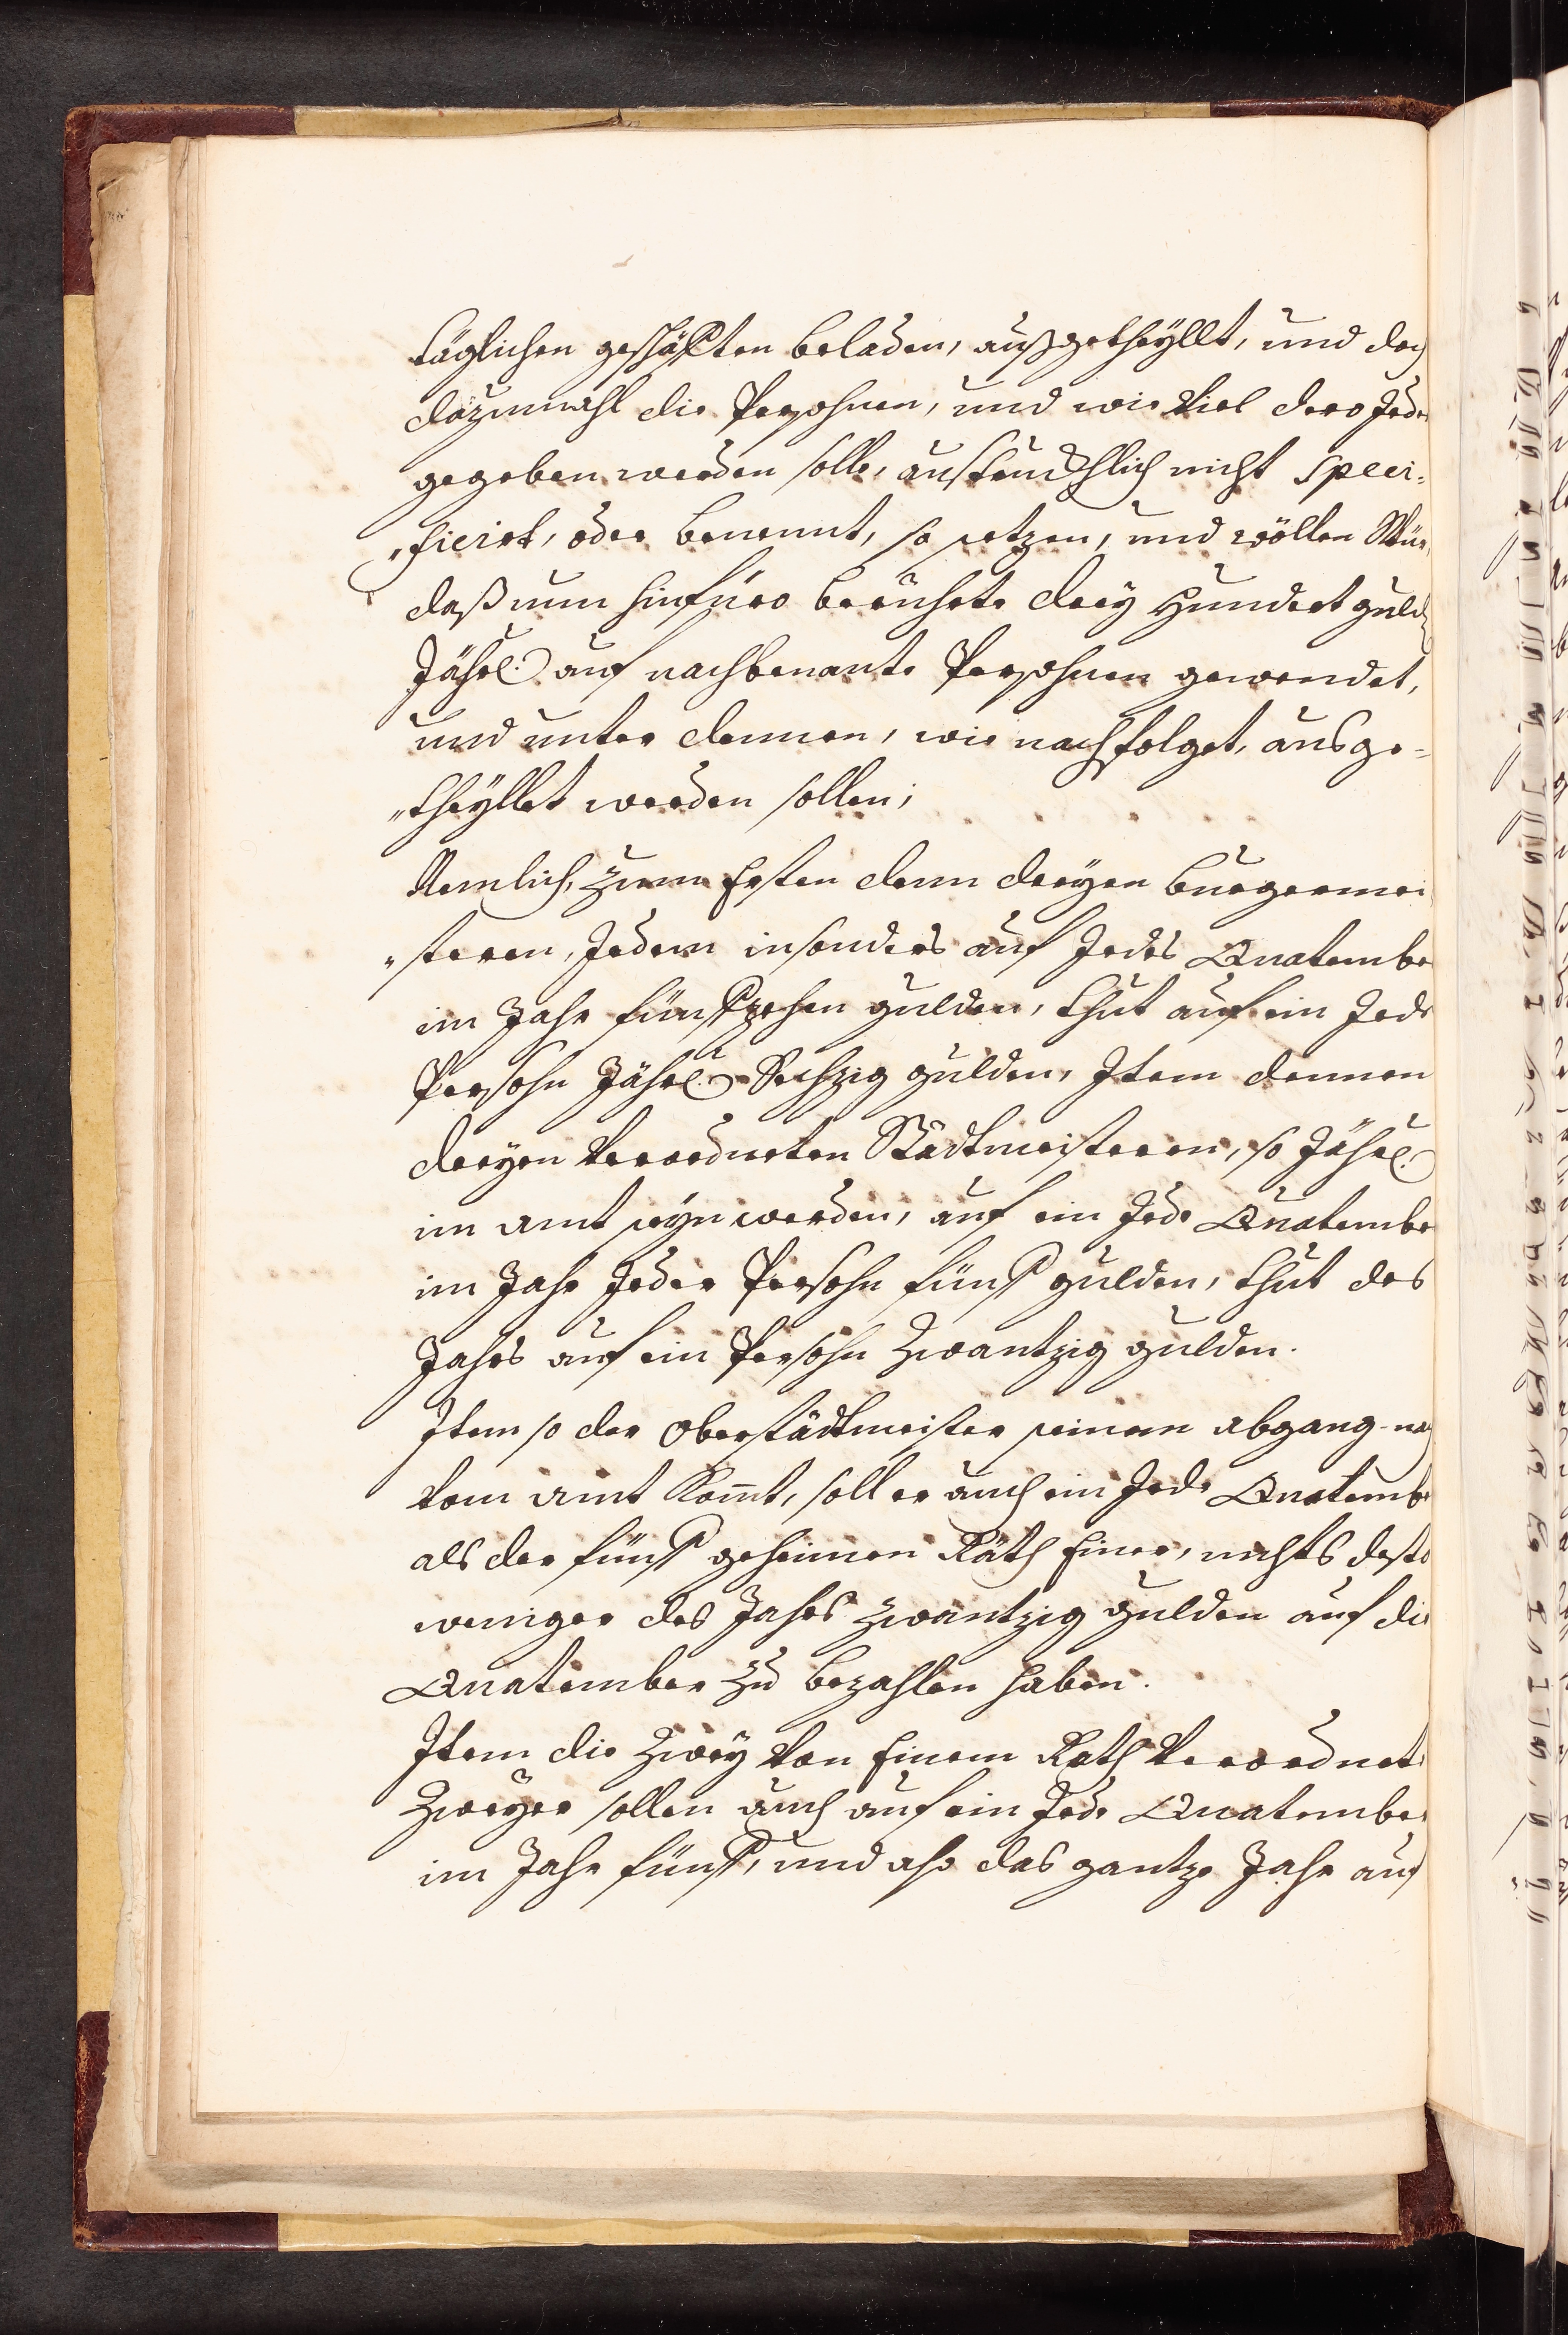 täglichen geschäfften beladen, außgetheyllt, und doch
dazumahl die Persohnen, und wie Viel dero Jede
gegeben werden solle, austruckhlich nicht speci-
„ficirt, oder benennt, so setzen, und wöllen Wür,
daß nun hinfüro berührte drey Hundert guld
Jährl. auf nachbenante Persohnen gewendet,
und unter dennen, wie nachfolget, ausge-
„theyllet werden sollen;
Nemlich, zum Ersten denn dreyen Burgermei
„steren, Jedem insonders auf Jedes Quatembe
im Jahr fünffzehen gulden, thut auf ein Jede
Persohn Jährl. Sechzig gulden, Item dennen
dreyen Verordneten Stadtmeisteren, so Jährl.
im amt seyn werden, auf ein Jede Quatembe
im Jahr Jeder Persohn fünff gulden, thut des
Jahrs auf ein Persohn Zwantzig gulden.
Item so der Oberstädtmeister seinem abgang nach
vom amt kom̄t, soll er auch ein Jede Quatembe
als der fünff geheimen Räth Einer, nichts desto
weniger des Jahrs Zwantzig gulden auf die
Quatember zu bezahlen haben.
Item die Zwey von Einem Rath Verordnete
Zweyer sollen auch auf ein Jede Quatember
im Jahr fünff, und also das gantze Jahr auf